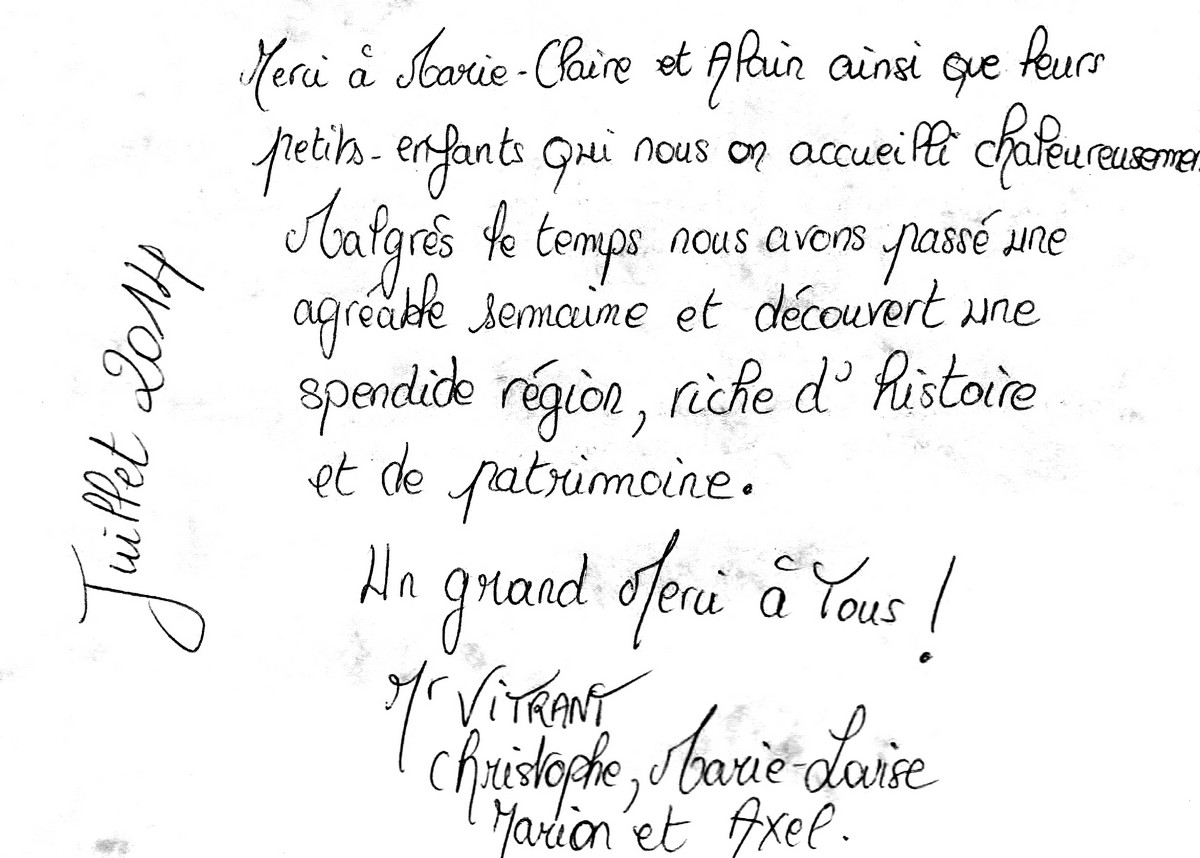 Merci à Marie-Claire et Alain ainsi que leurs
petits-enfants qui nous on accueilli chaleureusemen
Malgrés le temps nous avons passé une
agréable semaine et découvert une
spendide région, riche d'histoire
et de patrimoine.
Un grand Merci à Tous !
Mr VITRANT
Christophe, Marie-Louise
Marion et Axel.
Juillet 2014